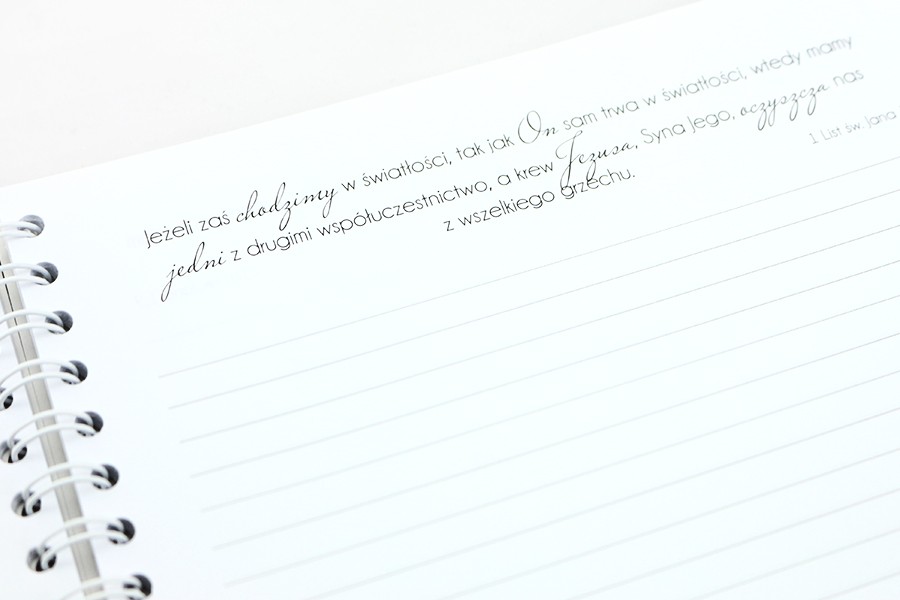 Jeżeli zaś chodzimy w światłości, tak jak On sam trwa w światłości, wtedy mamy
jedni z drugimi współuczestnictwo, a krew Jezusa, Syna Jego, oczyszcza nas
z wszelkiego grzechu.
1 List św. Jana